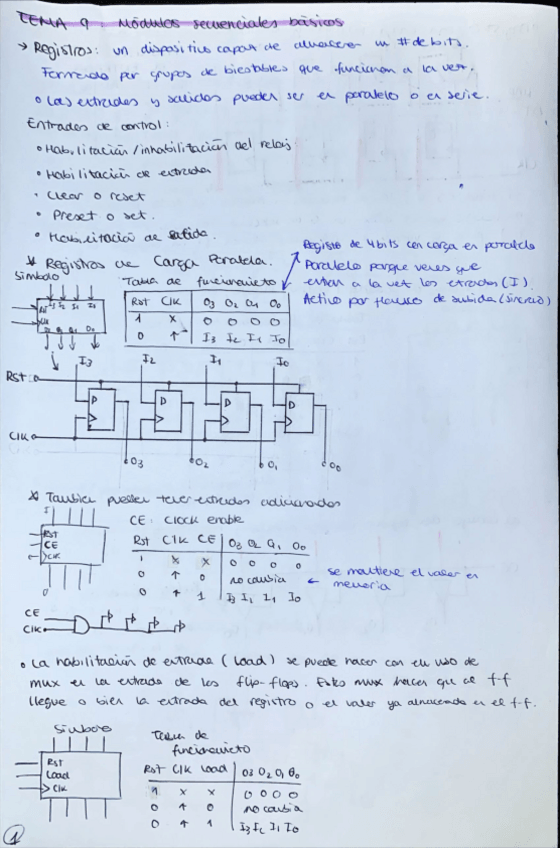 TEMA 9: Módulos secuenciales básicos
→ Registros: un dispositivo capaz de almacenar un # de bits.
Formado por grupos de biestables que funcionan a la vez.
• Las entradas y salidas pueden ser en paralelo ó en serie.
Entradas de control:
• Habilitación/inhabilitación del reloj
• Habilitación de entrada
• Clear o reset
• Preset o set.
• Habilitación de salida.
* Registros de Carga Paralela.
Registro de 4 bits con carga en paralelo
Paralelo porque veces que
entran a la vez las entradas (I).
Activo por flanco de subida (síncrono)
Símbolo
Tabla de funcionamiento
Rst Clk O3 O2 O1 O0
1 x 0 0 0 0
0 ↑ I3 I2 I1 I0
I3 I2 I1 I0
Rst
D D D D
Clk
O3 O2 O1 O0
* También pueden tener entradas adicionales
CE: Clock enable
Rst
CE
Clk
Rst Clk CE O3 O2 O1 O0
1 x x 0 0 0 0
0 ↑ 0 no cambia
0 ↑ 1 I3 I2 I1 I0
← se mantiene el valor en
memoria
CE
Clk
• La habilitación de entrada (Load) se puede hacer con el uso de
mux en la entrada de los flip-flops. Estos mux hacen que al f-f
llegue o bien la entrada del registro o el valor ya almacenado en el f-f.
Símbolo
Rst
Load
Clk
Tabla de
funcionamiento
Rst Clk Load O3 O2 O1 O0
1 x x 0 0 0 0
0 ↑ 0 no cambia
0 ↑ 1 I3 I2 I1 I0
1